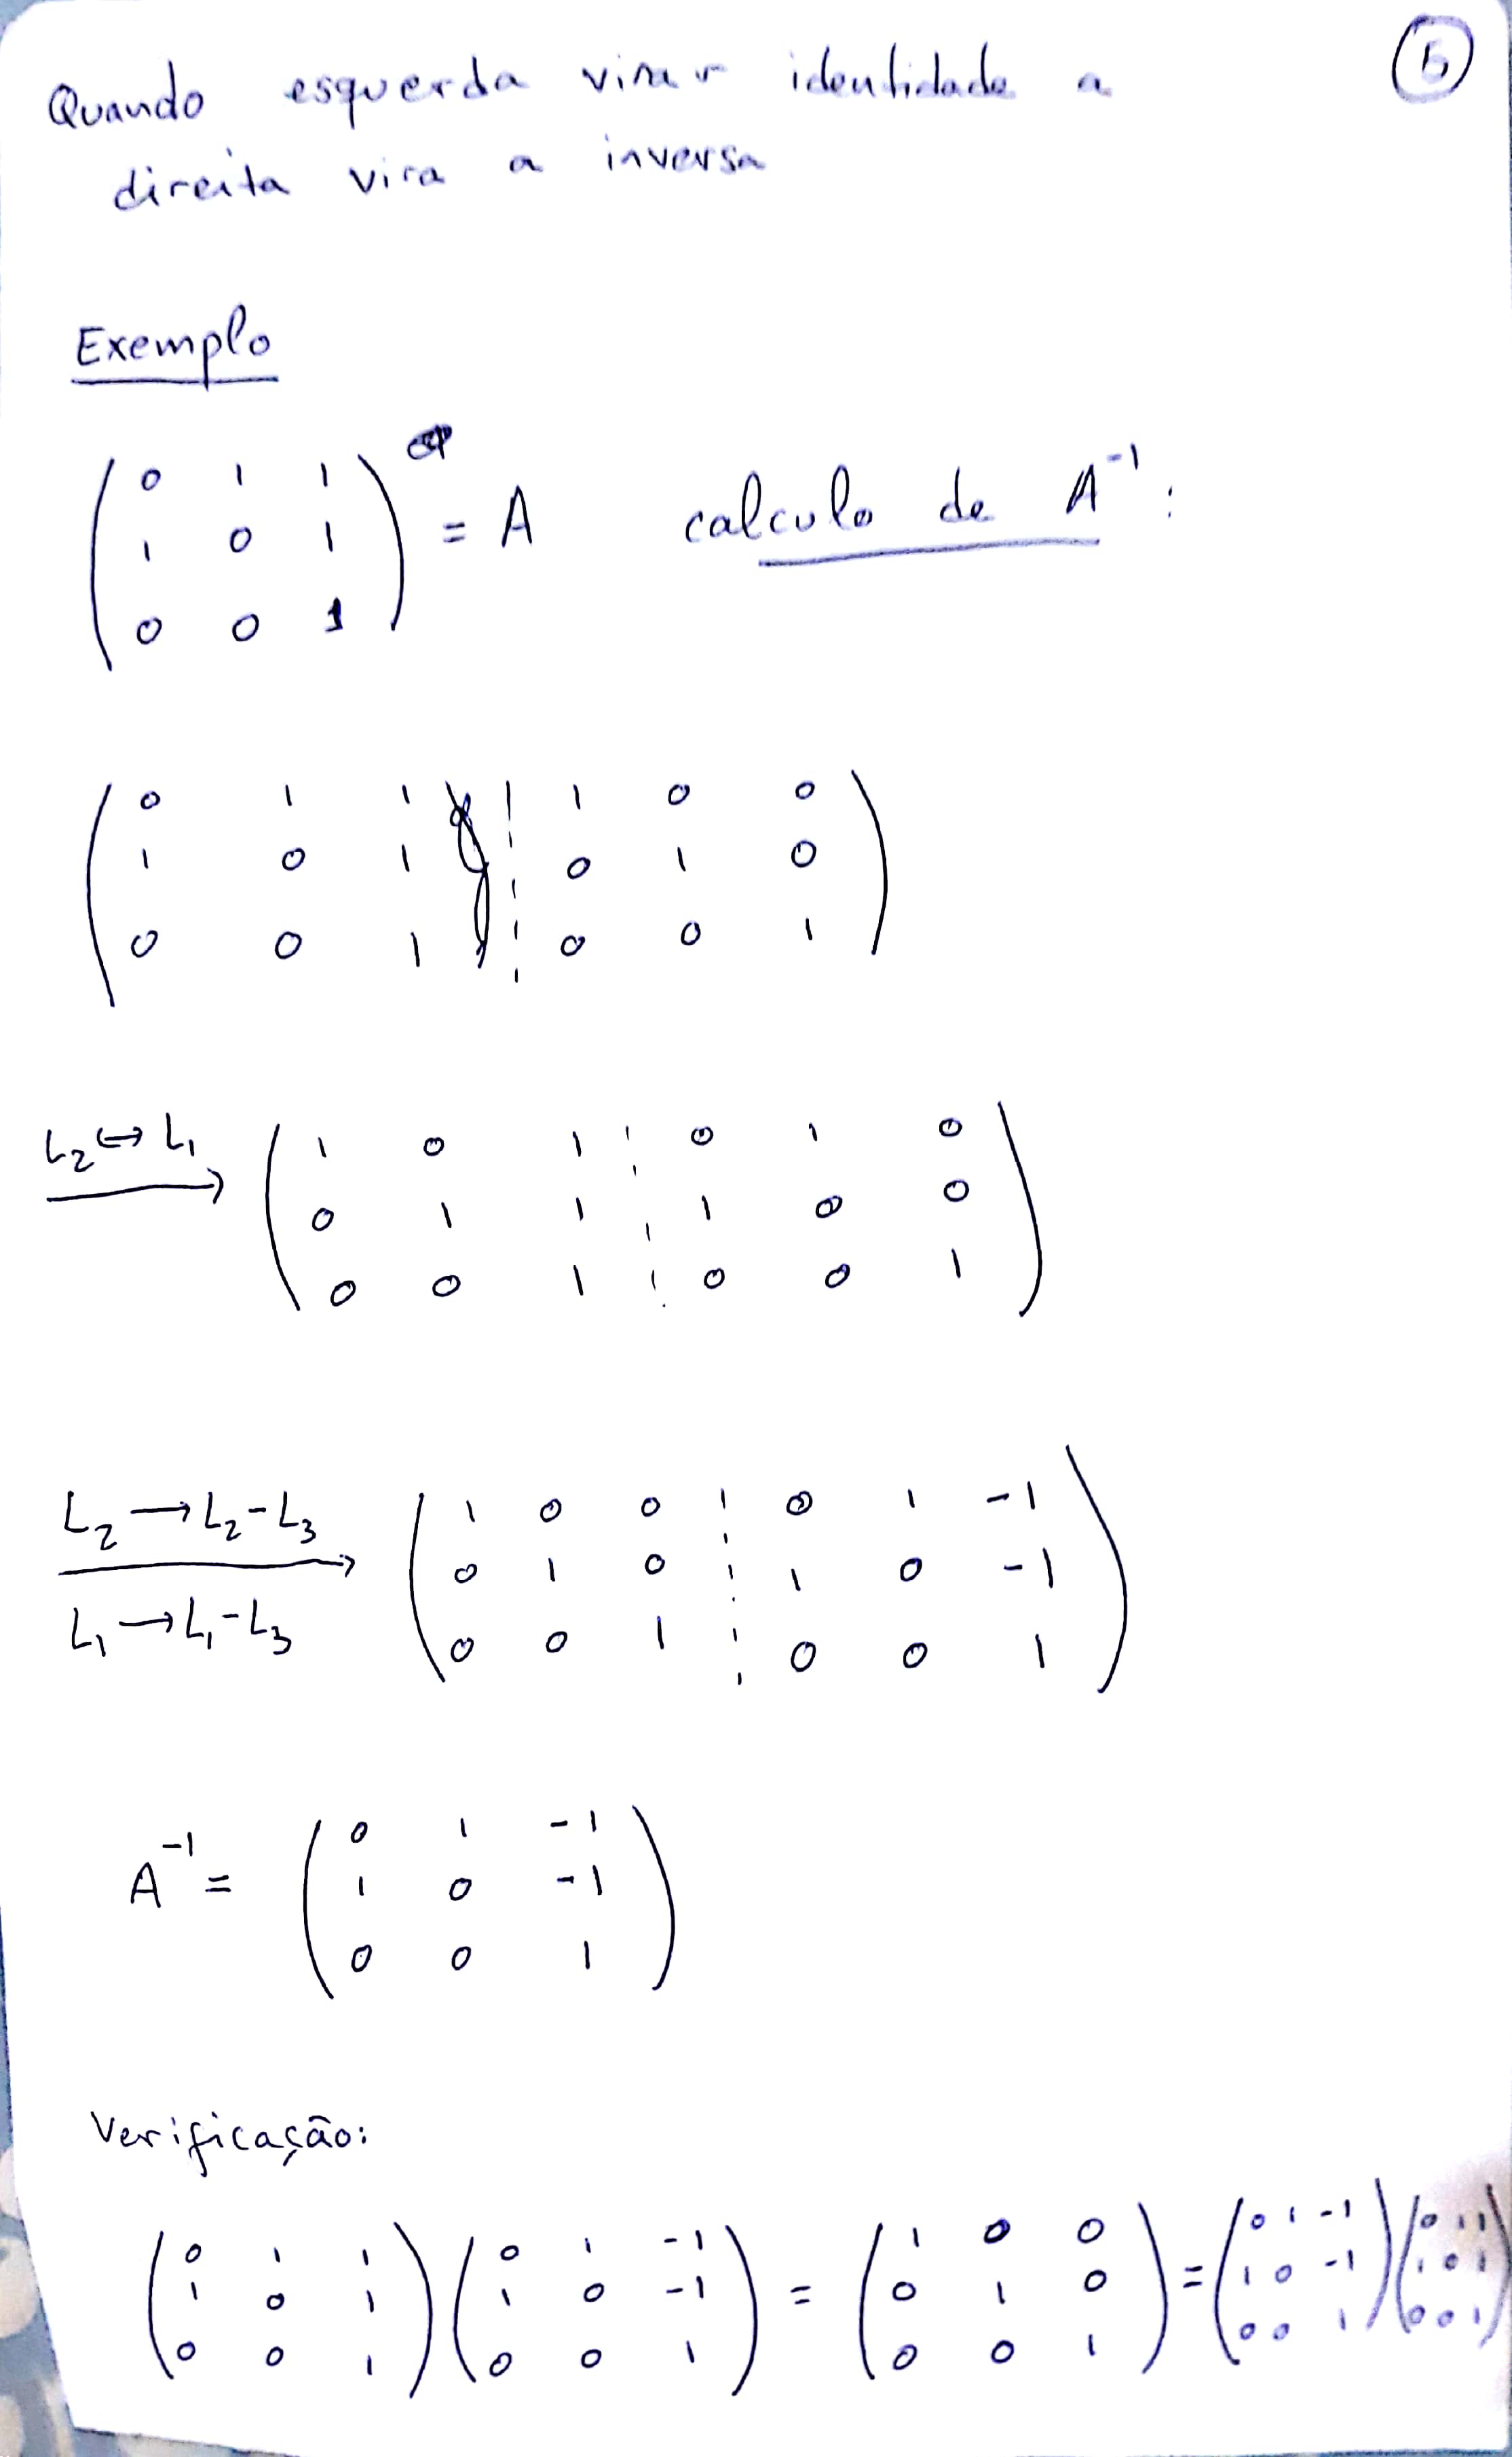 Quando esquerda virar identidade a
direita vira a inversa
Exemplo
( 0 1 1
1 0 1
0 0 1 ) = A calculo de A⁻¹:
( 0 1 1 ¦ 1 0 0
1 0 1 ¦ 0 1 0
0 0 1 ¦ 0 0 1 )
L₂ ↔ L₁
→ ( 1 0 1 ¦ 0 1 0
0 1 1 ¦ 1 0 0
0 0 1 ¦ 0 0 1 )
L₂ → L₂ - L₃
L₁ → L₁ - L₃
→ ( 1 0 0 ¦ 0 1 -1
0 1 0 ¦ 1 0 -1
0 0 1 ¦ 0 0 1 )
A⁻¹ = ( 0 1 -1
1 0 -1
0 0 1 )
Verificação:
( 0 1 1 ) ( 0 1 -1 ) = ( 1 0 0 ) = ( 0 1 -1 ) ( 0 1 1 )
( 1 0 1 ) ( 1 0 -1 ) = ( 0 1 0 ) = ( 1 0 -1 ) ( 1 0 1 )
( 0 0 1 ) ( 0 0 1 ) = ( 0 0 1 ) = ( 0 0 1 ) ( 0 0 1 )